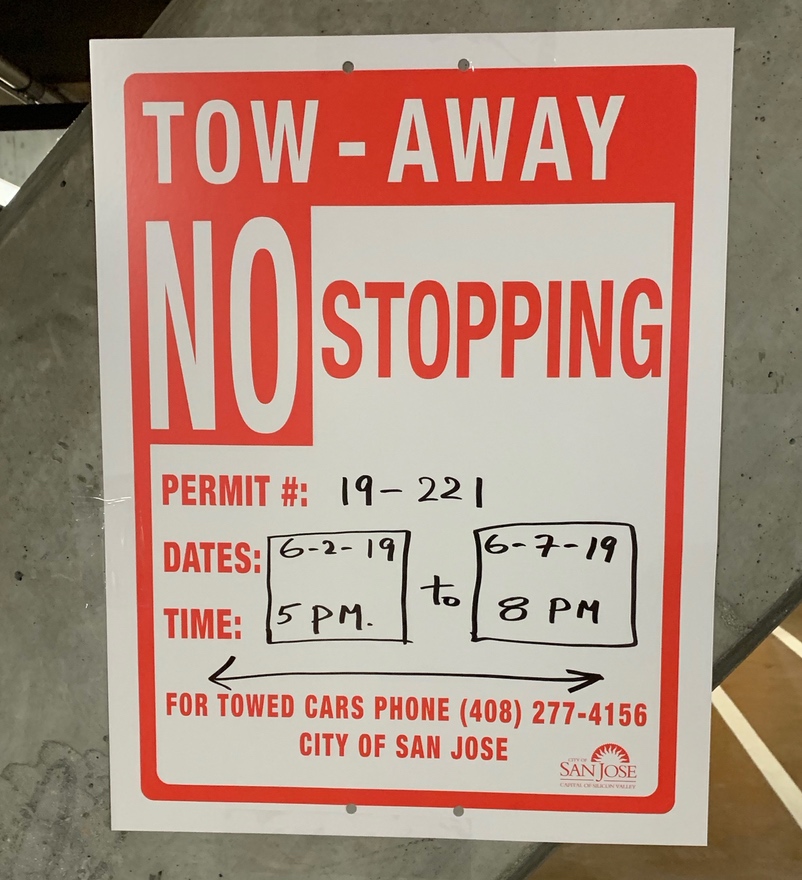 TOW-AWAY
NO STOPPING
PERMIT #: 19-221
DATES: 6-2-19 to 6-7-19
TIME: 5 PM. 8 PM
FOR TOWED CARS PHONE (408) 277-4156
CITY OF SAN JOSE
CITY OF
SAN JOSE
CAPITAL OF SILICON VALLEY